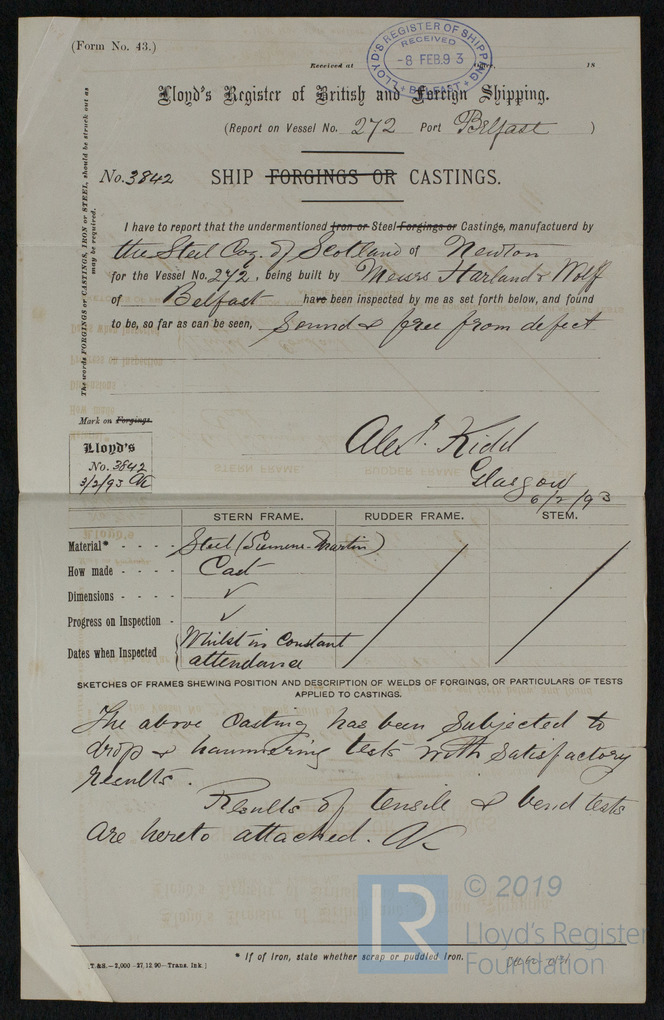 (Form No. 43.)
LLOYD'S REGISTER OF SHIPPING
RECEIVED
-8 FEB.93
BELFAST
Received at 18
Lloyd's Register of British and Foreign Shipping.
(Report on Vessel No. 272 Port Belfast )
No. 3842 SHIP FORGINGS OR CASTINGS.
The words FORGINGS or CASTINGS, IRON or STEEL, should be struck out as
may be required.
I have to report that the undermentioned Iron or Steel Forgings or Castings, manufactuerd by
the Steel Coy. of Scotland of Newton
for the Vessel No. 272, being built by Messrs Harland & Wolff
of Belfast have been inspected by me as set forth below, and found
to be, so far as can be seen, Sound & free from defect
Mark on Forgings.
Lloyd's
No. 3842
3/2/93 AK
Alexr. Kidd
Glasgow
6/2/93
STERN FRAME. RUDDER FRAME. STEM.
Material* - - - - Steel (Siemens-Martin)
How made - - - - Cast
Dimensions - - - - ✓
Progress on Inspection - ✓
Dates when Inspected Whilst in Constant
attendance
SKETCHES OF FRAMES SHEWING POSITION AND DESCRIPTION OF WELDS OF FORGINGS, OR PARTICULARS OF TESTS
APPLIED TO CASTINGS.
The above Casting has been Subjected to
drop & hammering tests with Satisfactory
Results.
Results of tensile & bend tests
are hereto attached. AK
LR © 2019
Lloyd's Register
Foundation
* If of Iron, state whether scrap or puddled Iron.
[T &S.—2,000—27.12.90—Trans. Ink.]